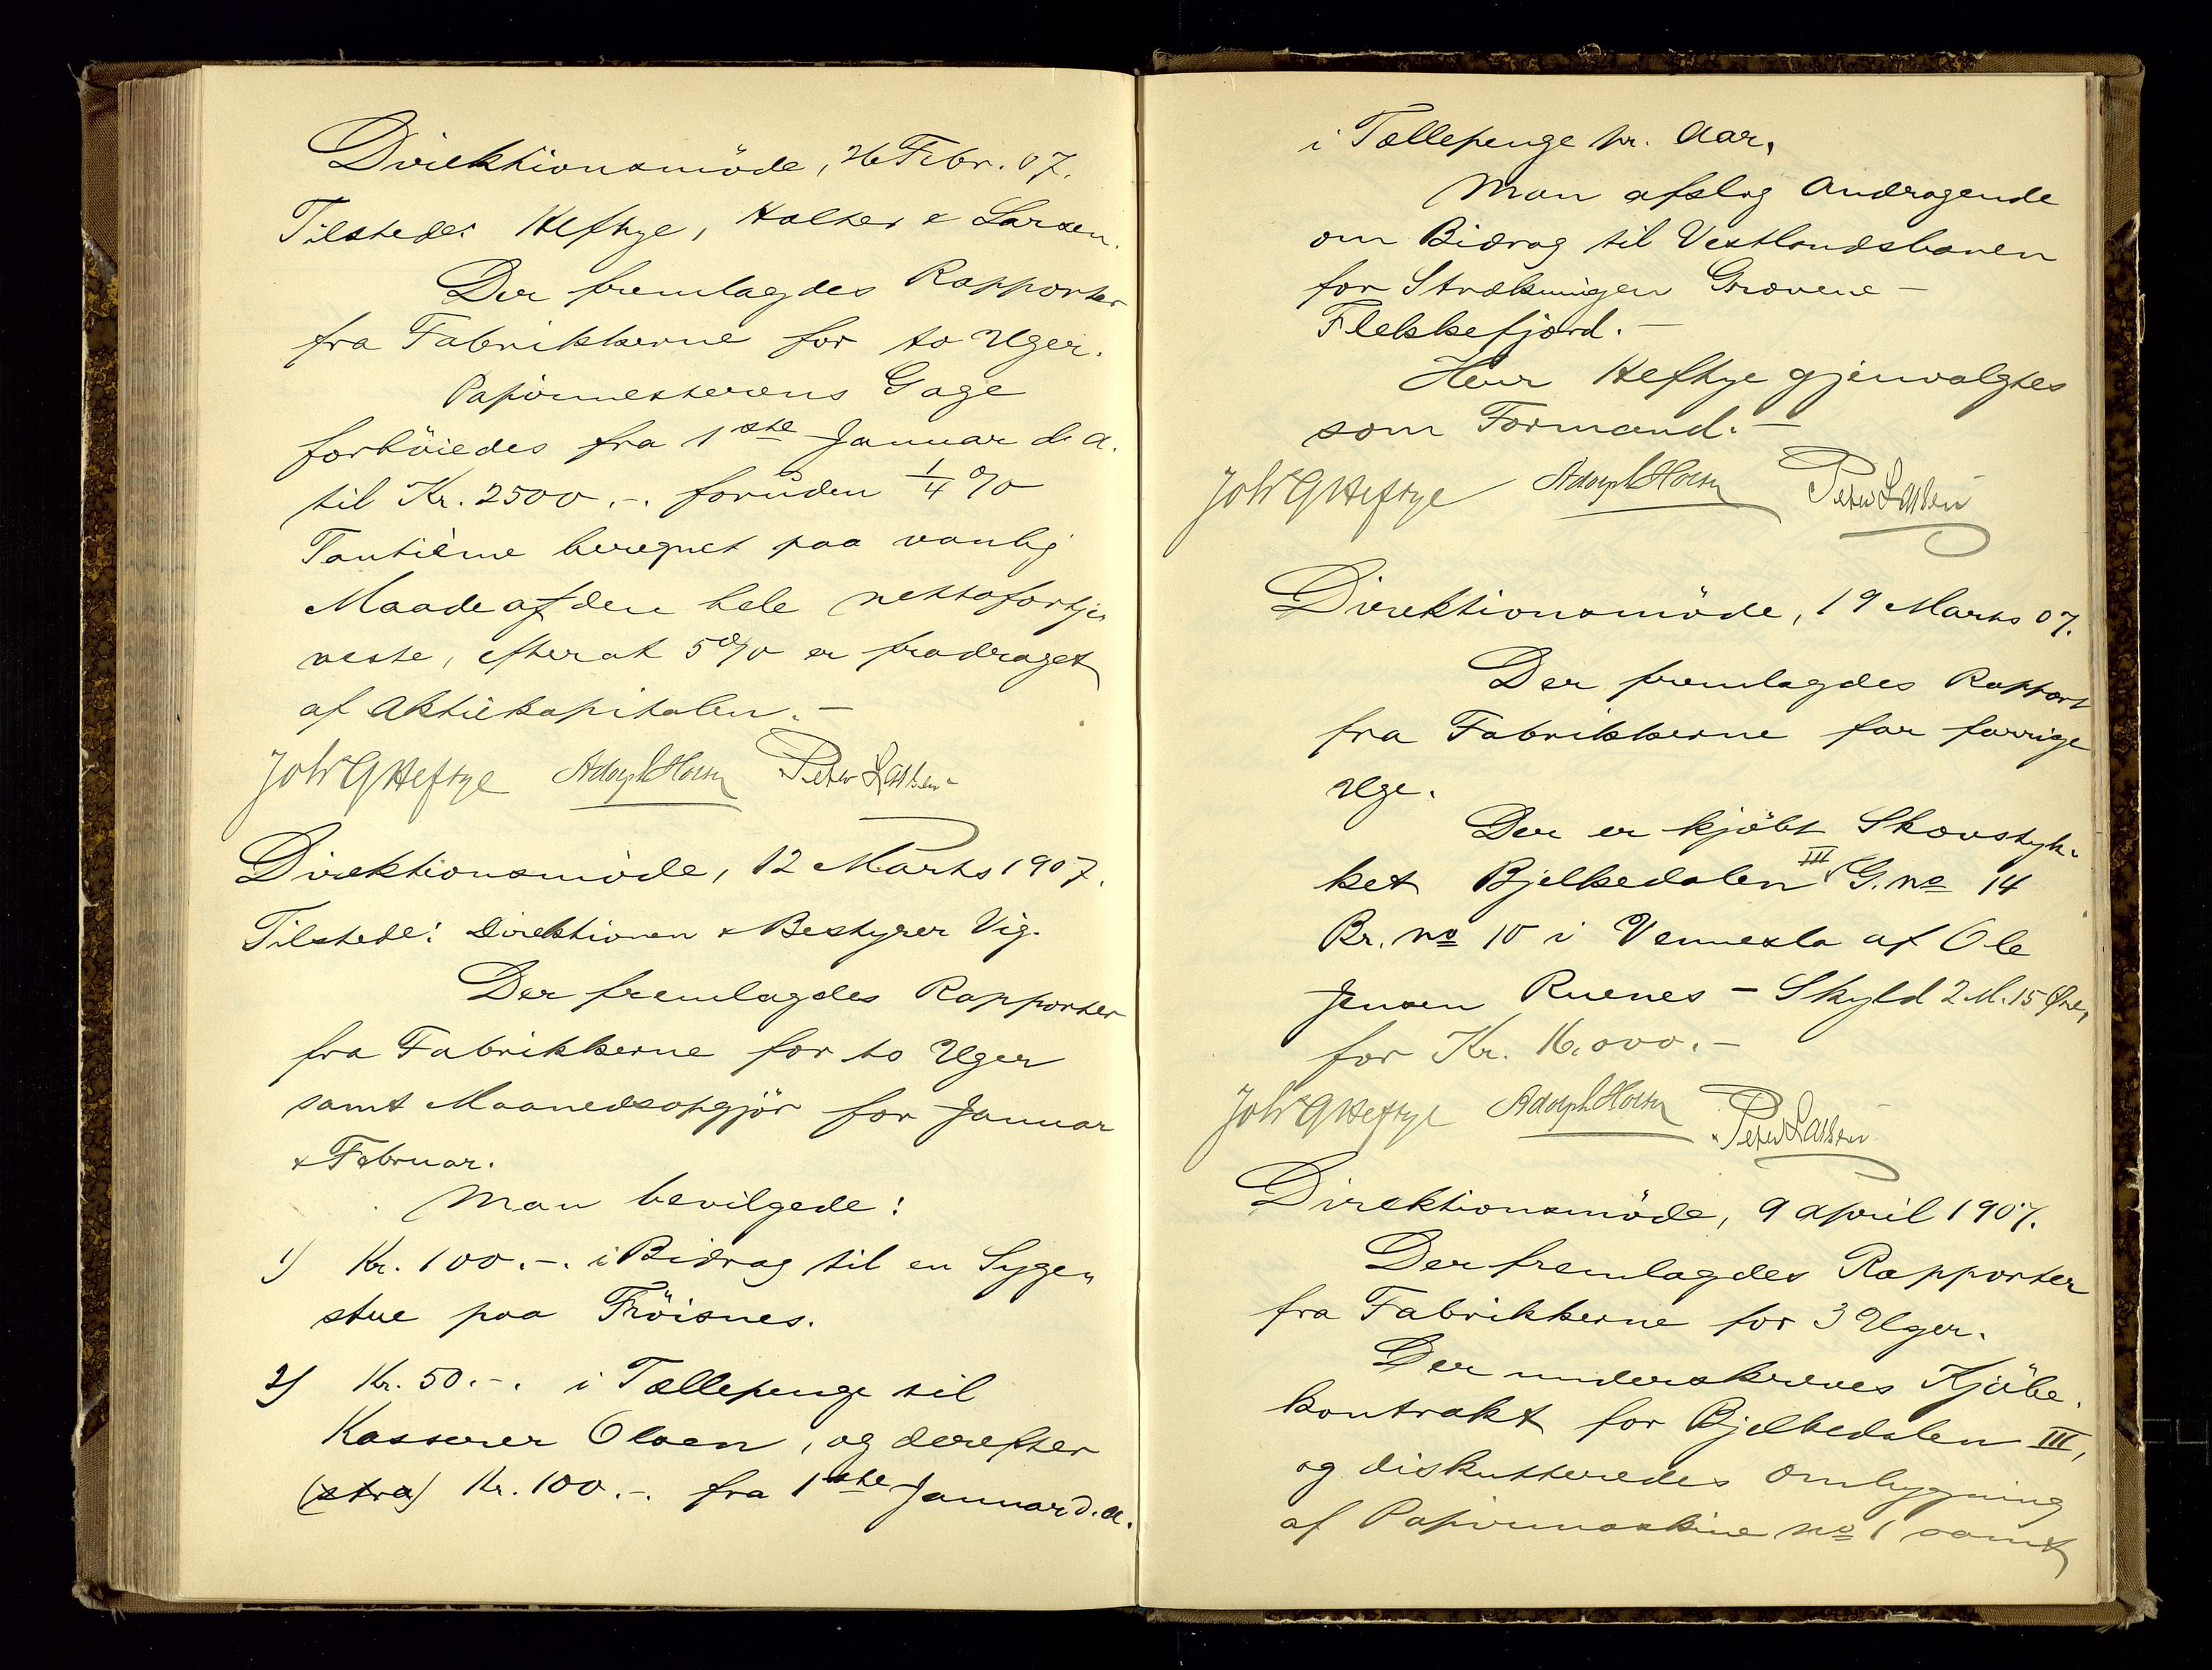 Direktionsmöde, 26 Febr. 07.
Tilstede: Heftye, Holter & Larsen.
Der fremlagdes Rapporter
fra Fabrikkerne for to Uger.
Papirmesterens Gage
forhöiedes fra 1ste Januar d. a.
til Kr. 2500.-. foruden 1/4 %
Tantième beregnet paa vanlig
Maade af den hele nettofortje-
neste, efterat 5 % er fradraget
af Aktiekapitalen.-
Joh G Heftye Adolph Holter Peter Larsen
Direktionsmöde, 12 Marts 1907.
Tilstede: Direktionen & Bestyrer Vig.
Der fremlagdes Rapporter
fra Fabrikkerne for to Uger
samt Maanedsopgjör for Januar
& Februar.
Man bevilgede:
1) Kr. 100.-. i Bidrag til en Syge-
stue paa Fröisnes.
2) Kr. 50.-. i Tællepenge til
Kasserer Olsen, og derefter
Kr. 100.-. fra 1ste Januar d. a.
i Tællepenge pr. Aar.
Man afslog Andragende
om Bidrag til Vestlandsbanen
for Strækningen Grovene -
Flekkefjord.-
Herr Heftye gjenvalgtes
som Formand.-
Joh G Heftye Adolph Holter Peter Larsen
Direktionsmöde, 19 Marts 07.
Der fremlagdes Rapport
fra Fabrikkerne for forrige
Uge.
Der er kjöbt Skovstyk-
ket Bjelkedalen III G. no 14
Br. no 10 i Vennesla af Ole
Jensen Ruenes - Skyld 2 M. 15 Øre,
for Kr. 16.000.-
Joh G Heftye Adolph Holter Peter Larsen
Direktionsmöde, 9 April 1907.
Der fremlagdes Rapporter
fra Fabrikkerne for 3 Uger.
Der underskreves Kjöbe-
kontrakt for Bjelkedalen III,
og diskutteredes Ombygning
af Papirmaskine no 1 samt